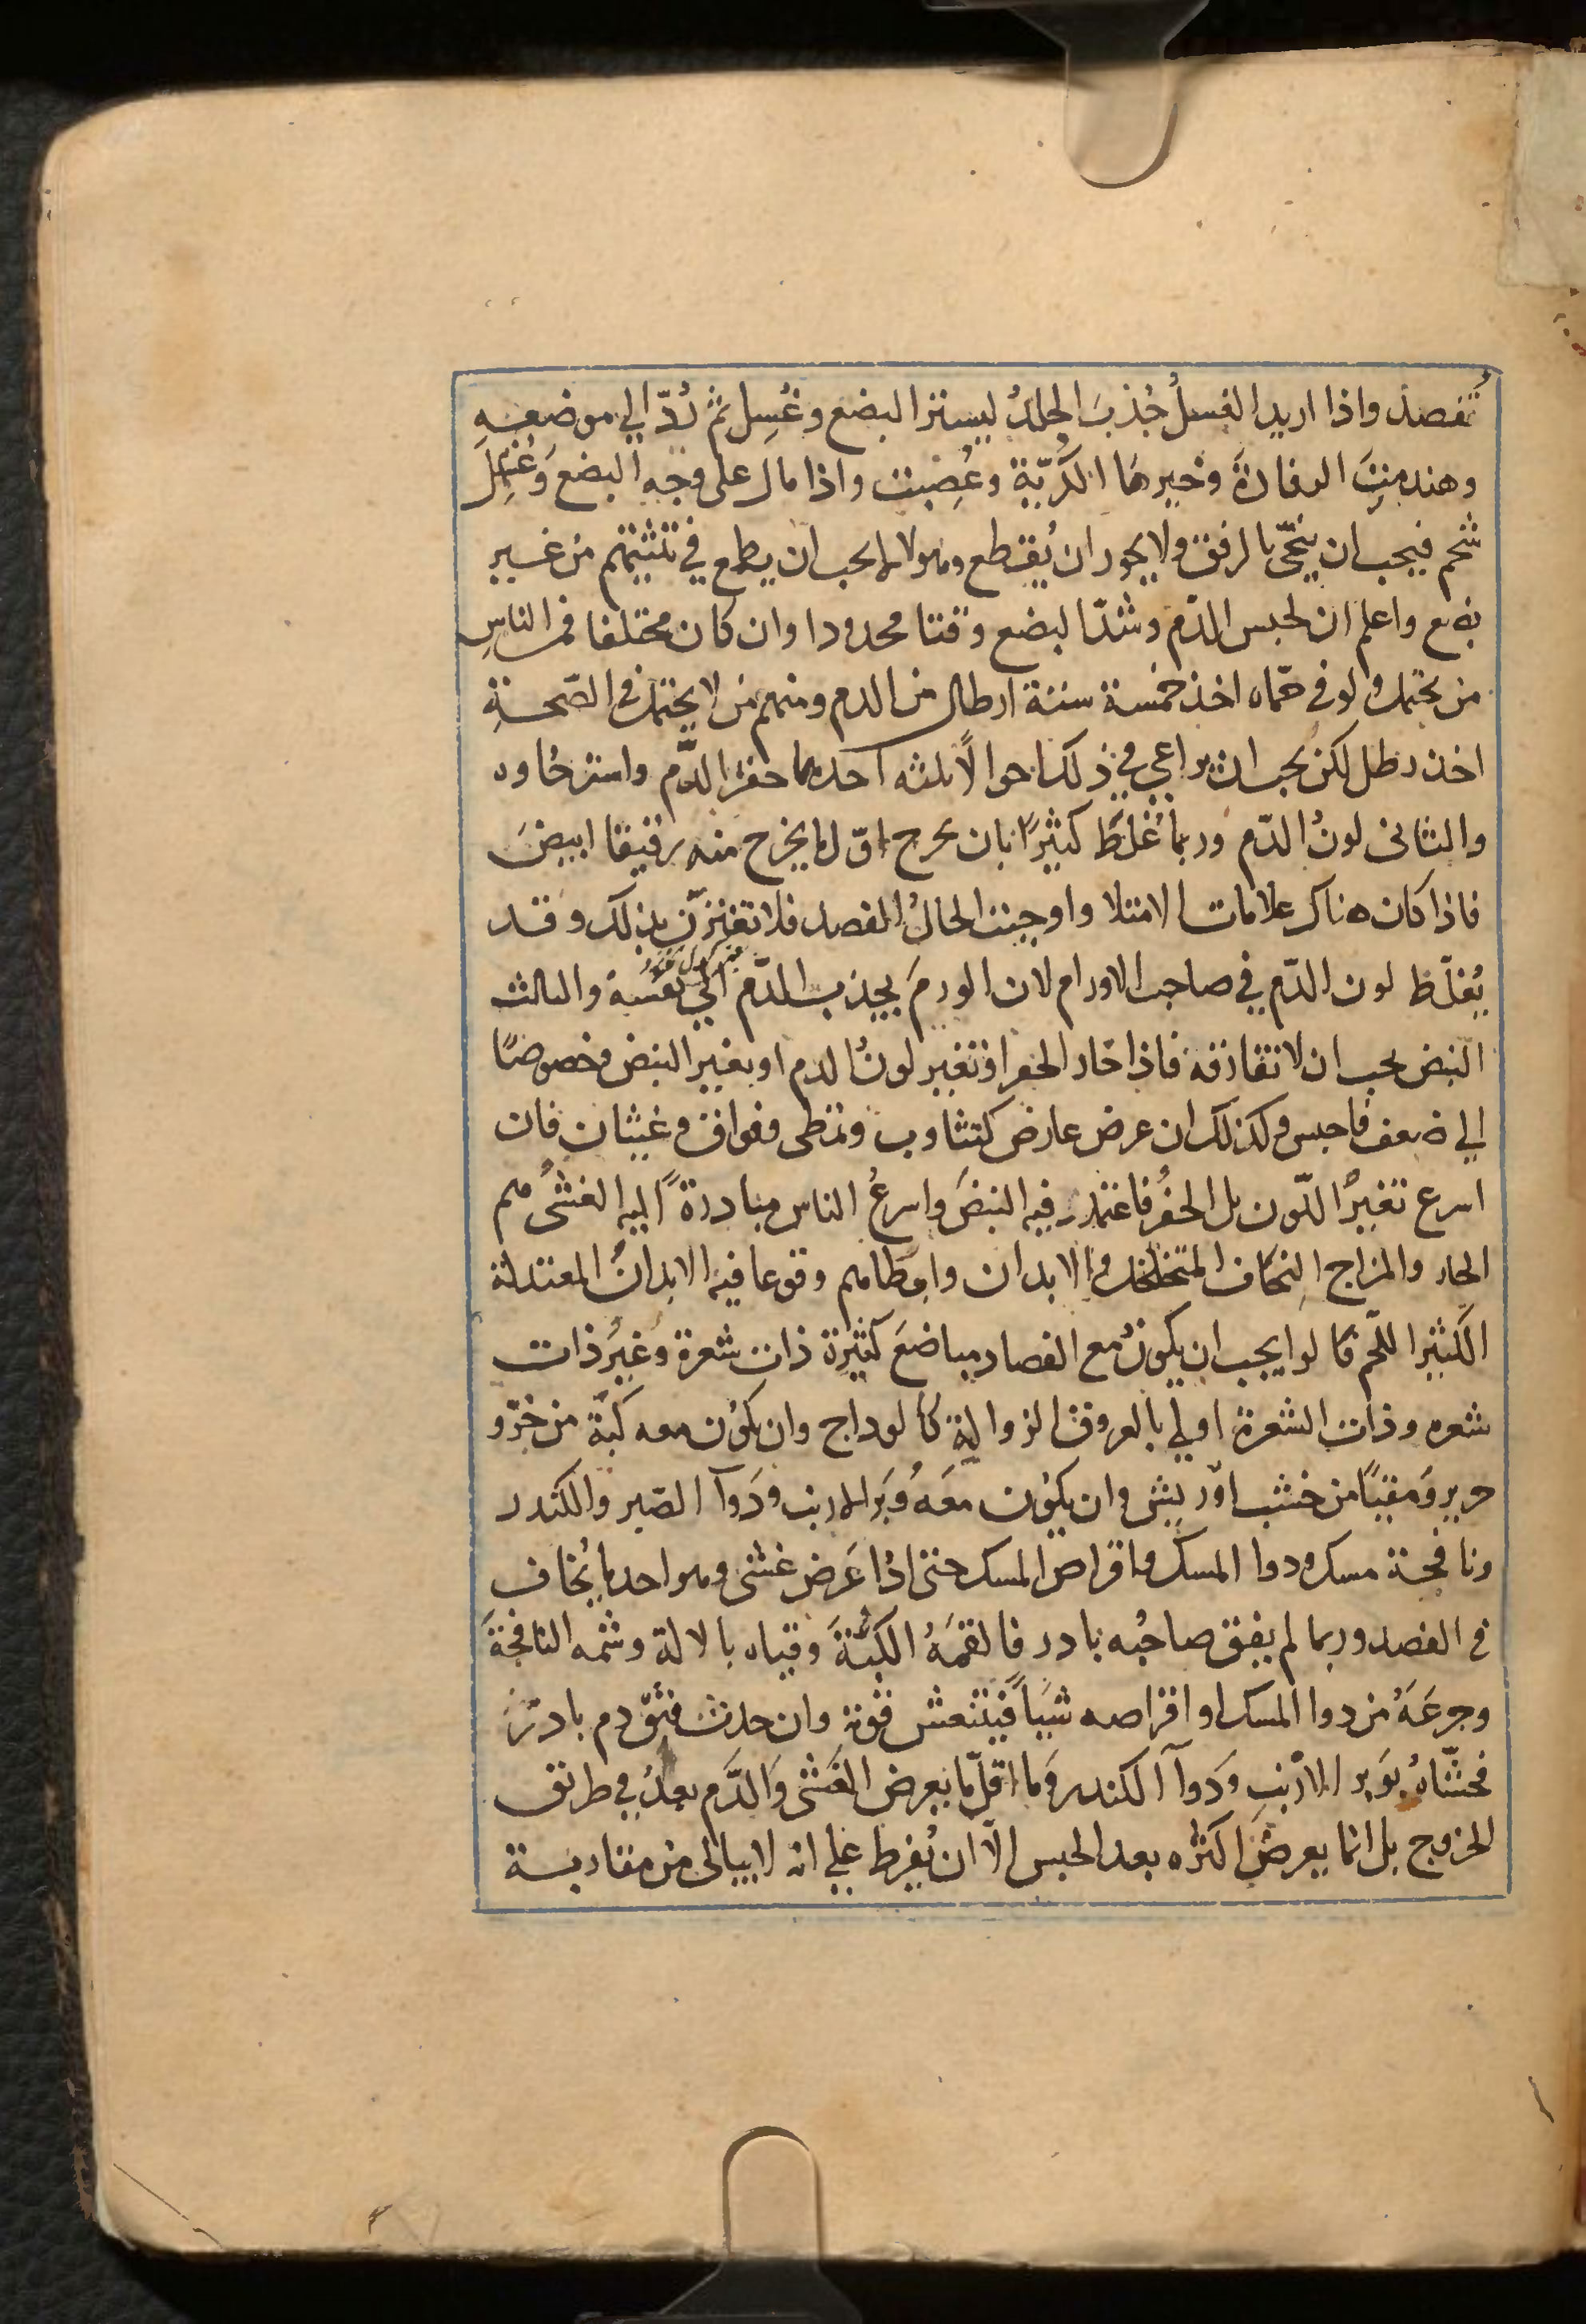 تُفصد واذا اريد الغسلُ جُذبَ الجلدُ ليستتر البضع وغُسِل ثمّ رُدّ الي موضعهِ
وهندمتِ الرفادةَ وخيرها الكُرّيّة وعُصِبت واذا مال علي وجه البضع
شحم فيجب ان ينحّى بالرفق ولا يجوز ان يُقتطع وهولا لا يجب ان يطمع في تثنيتهم من غير
بضع واعلم ان لحبس الدّم وشدّ البضع وقتا محدودا وان كان مختلفا فمن الناسِ
من يحتمل ولو في حمّاه اخذ خمسة ستة ارطال من الدم ومنهم من لا يحتمل في الصّحةِ
اخذ رطل لكن يجب ان يراعي في ذلك احوالاً ثلثه احدها حفز الدّم واسترخاوه
والثاني لونُ الدّم وربما غُلظَ كثيرًا بان يخرج اوّل ما يخرج منه رقيقا ابيضَ
فاذا كان هناك علامات الامتلا واوجبت الحالُ الفصد فلا تغترّنّ بذلك وقد
يُغلّظ لون الدّم في صاحب الاورام لان الورمَ يجذب الدّم الي نفسه والثالث
النبض يجب ان لا تفارقه فاذا خار الحفز او تغير لونُ الدم او تغير النبض وخصوصًا
الي ضعف فاحبس وكذلك ان عرض عارض كتثاوب وتمطى وفواق وغثيان فان
اسرع تغيرُ اللّون بل الحفزُ فاعتمد فيه النبضَ واسرعُ الناس مبادرةً اليه الغشىُ هم
الحار والمزاج النحاف المتخلخلوا الابدان وابطاهم وقوعا فيه الابدانُ المعتدلة
الكثيرا اللّحم قالوا يجب ان يكون مع الفصاد مباضعَ كثيرة ذات شعرة وغيرُ ذات
شعره وذات الشعرة اولي بالعروق الزوالة كالوداج وان يكون معه كبّة من خزّ و
حرير ومقيّاً من خشب اوريش وان يكون معَهُ وَبَر الارنب ودَوآ الصّبر والكندر
ونافجة مسك ودوا المسك واقراص المسك حتى اذا عَرض غشى وهو احد ما يُخاف
في الفصد وربما لم يفق صاحبُه بادر فالقمَهُ الكبّةَ وقياه بالالة وشمه النافجةَ
وجرعَهُ من دوا المسك او اقراصه شيَاً فينتعش قوته وان حدث فثق دم بادر
فحشّاهُ بوَبر الارنبِ ودَوآ الكندر وَما اقلّ ما يعرض الغَشى وَالدَّم بعدُ في طريق
الخروج بل انما يعرضُ اكثره بعد الحبس الّا ان يُفرط علي انه لا يبالي من مقاربة